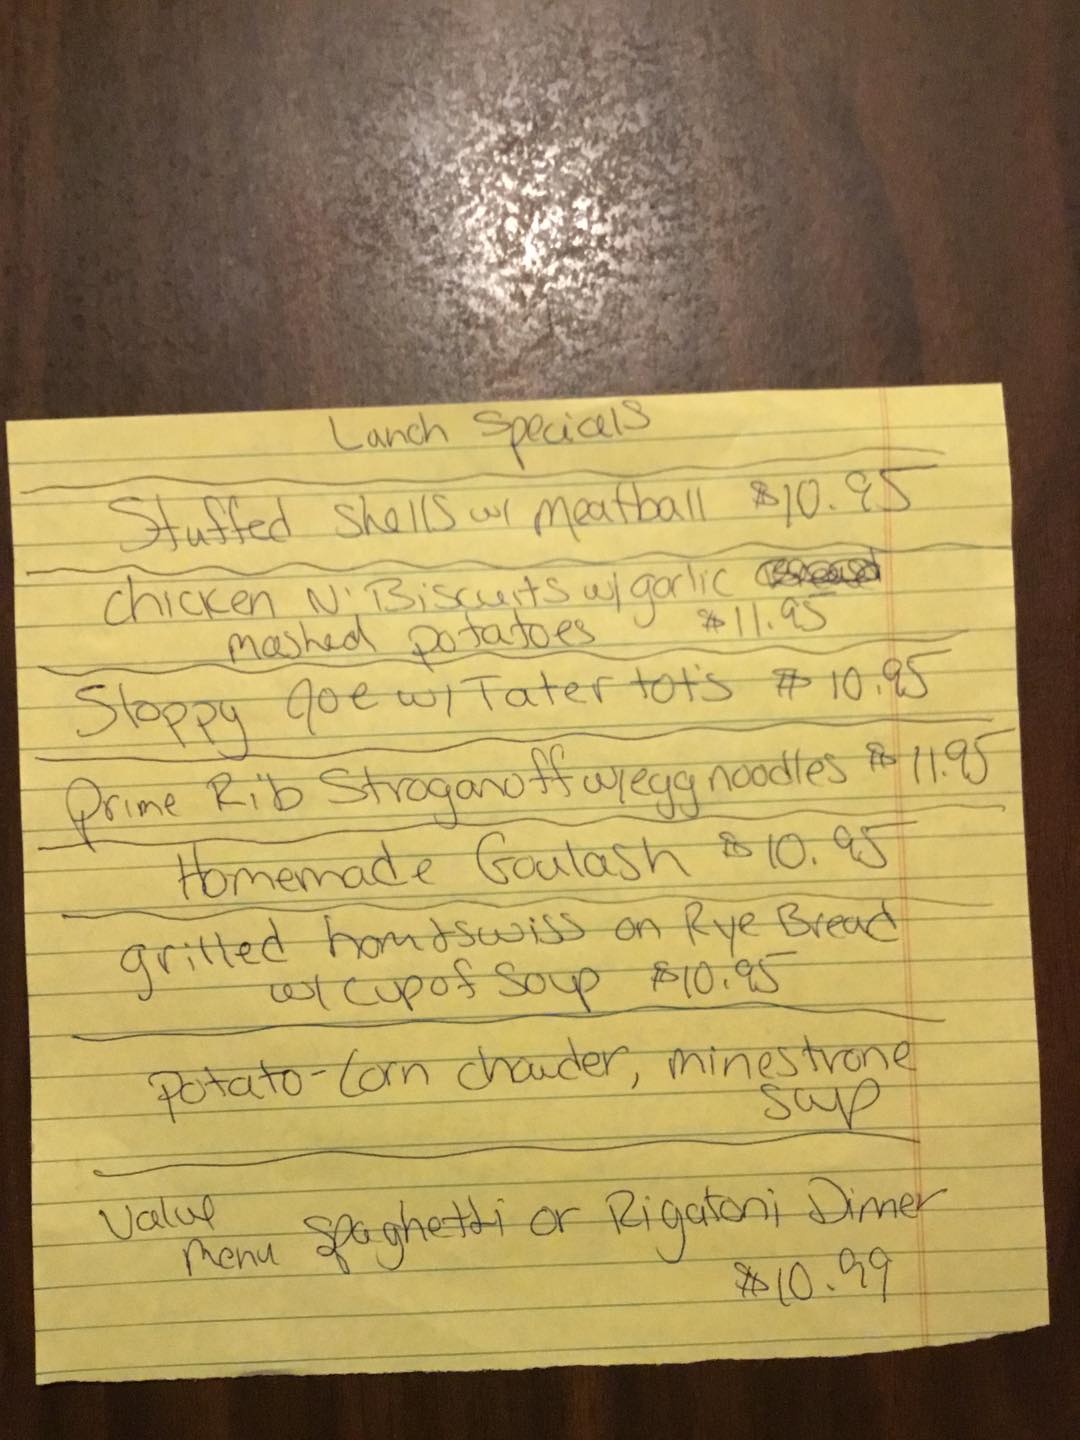 Lunch Specials
Stuffed Shells w/ Meatball $10.95
Chicken N' Biscuits w/ garlic
mashed potatoes $11.95
Sloppy Joe w/ Tater tot's $10.95
Prime Rib Stroganoff w/egg noodles $11.95
Homemade Goulash $10.95
grilled ham+swiss on Rye Bread
w/ cup of Soup $10.95
Potato-Corn chowder, minestrone
Soup
Value Spaghetti or Rigatoni Dinner
Menu
$10.99